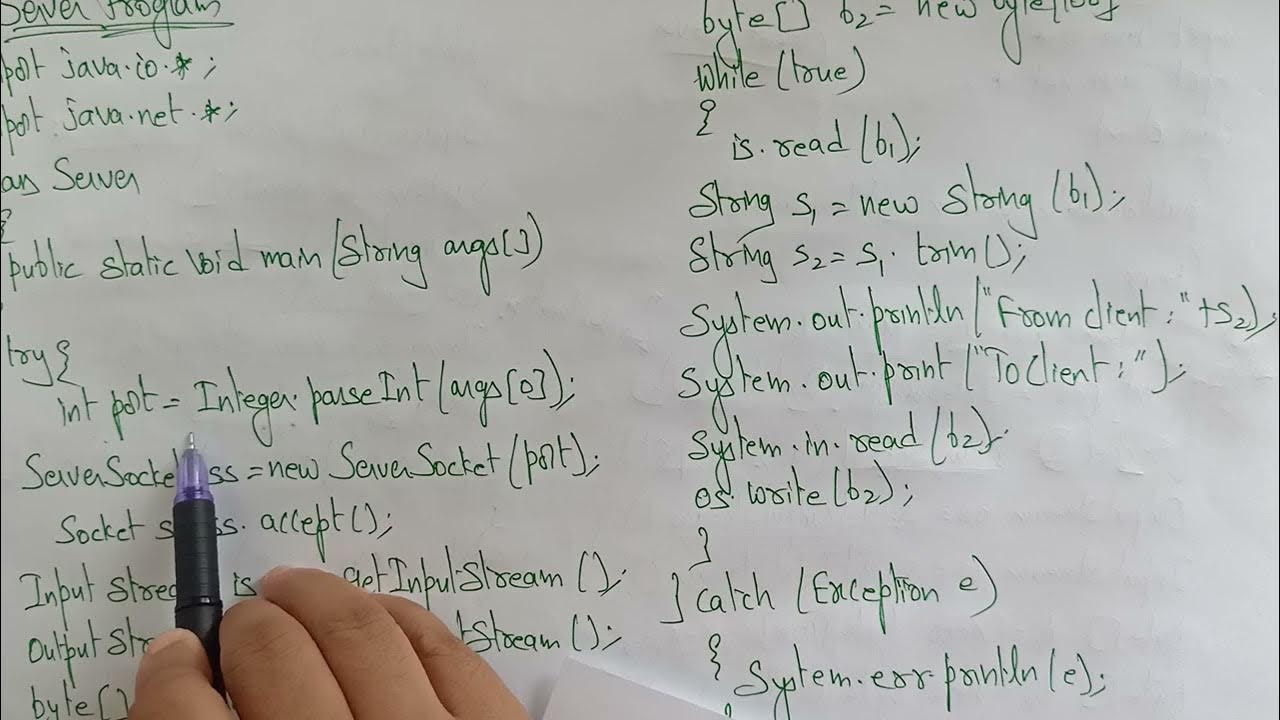 Server Program
port java.io.*;
port java.net.*;
ass Server
{
public static void main(String args[])
try{
int port = Integer.parseInt(args[0]);
ServerSocket ss = new ServerSocket(port);
Socket s ss.accept();
Input Stream is getInputStream();
Output Str tStream();
byte[]
byte[] b2 = new byte[100]
while (true)
{
is.read(b1);
String s1 = new String(b1);
String s2 = s1.trim();
System.out.println("From client:"+s2);
System.out.print("To Client:");
System.in.read(b2);
os.write(b2);
}
} catch (Exception e)
{
System.err.println(e);
}